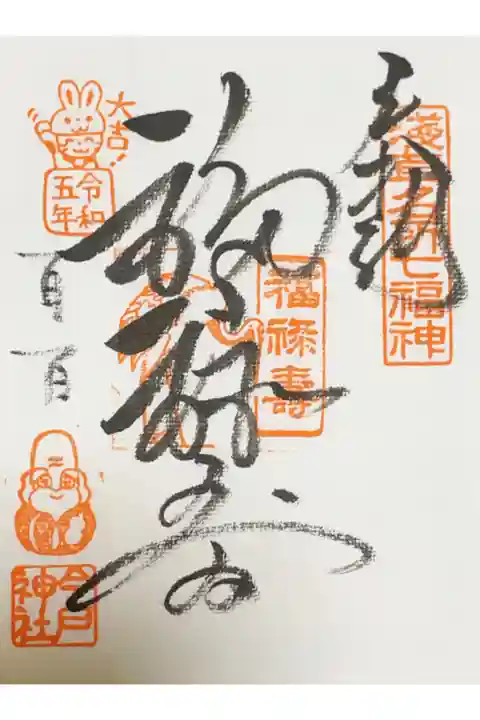 奉拝
浅草名所七福神
福禄寿
福禄壽
大吉
令和
五年
一月
一日
今戸
神社